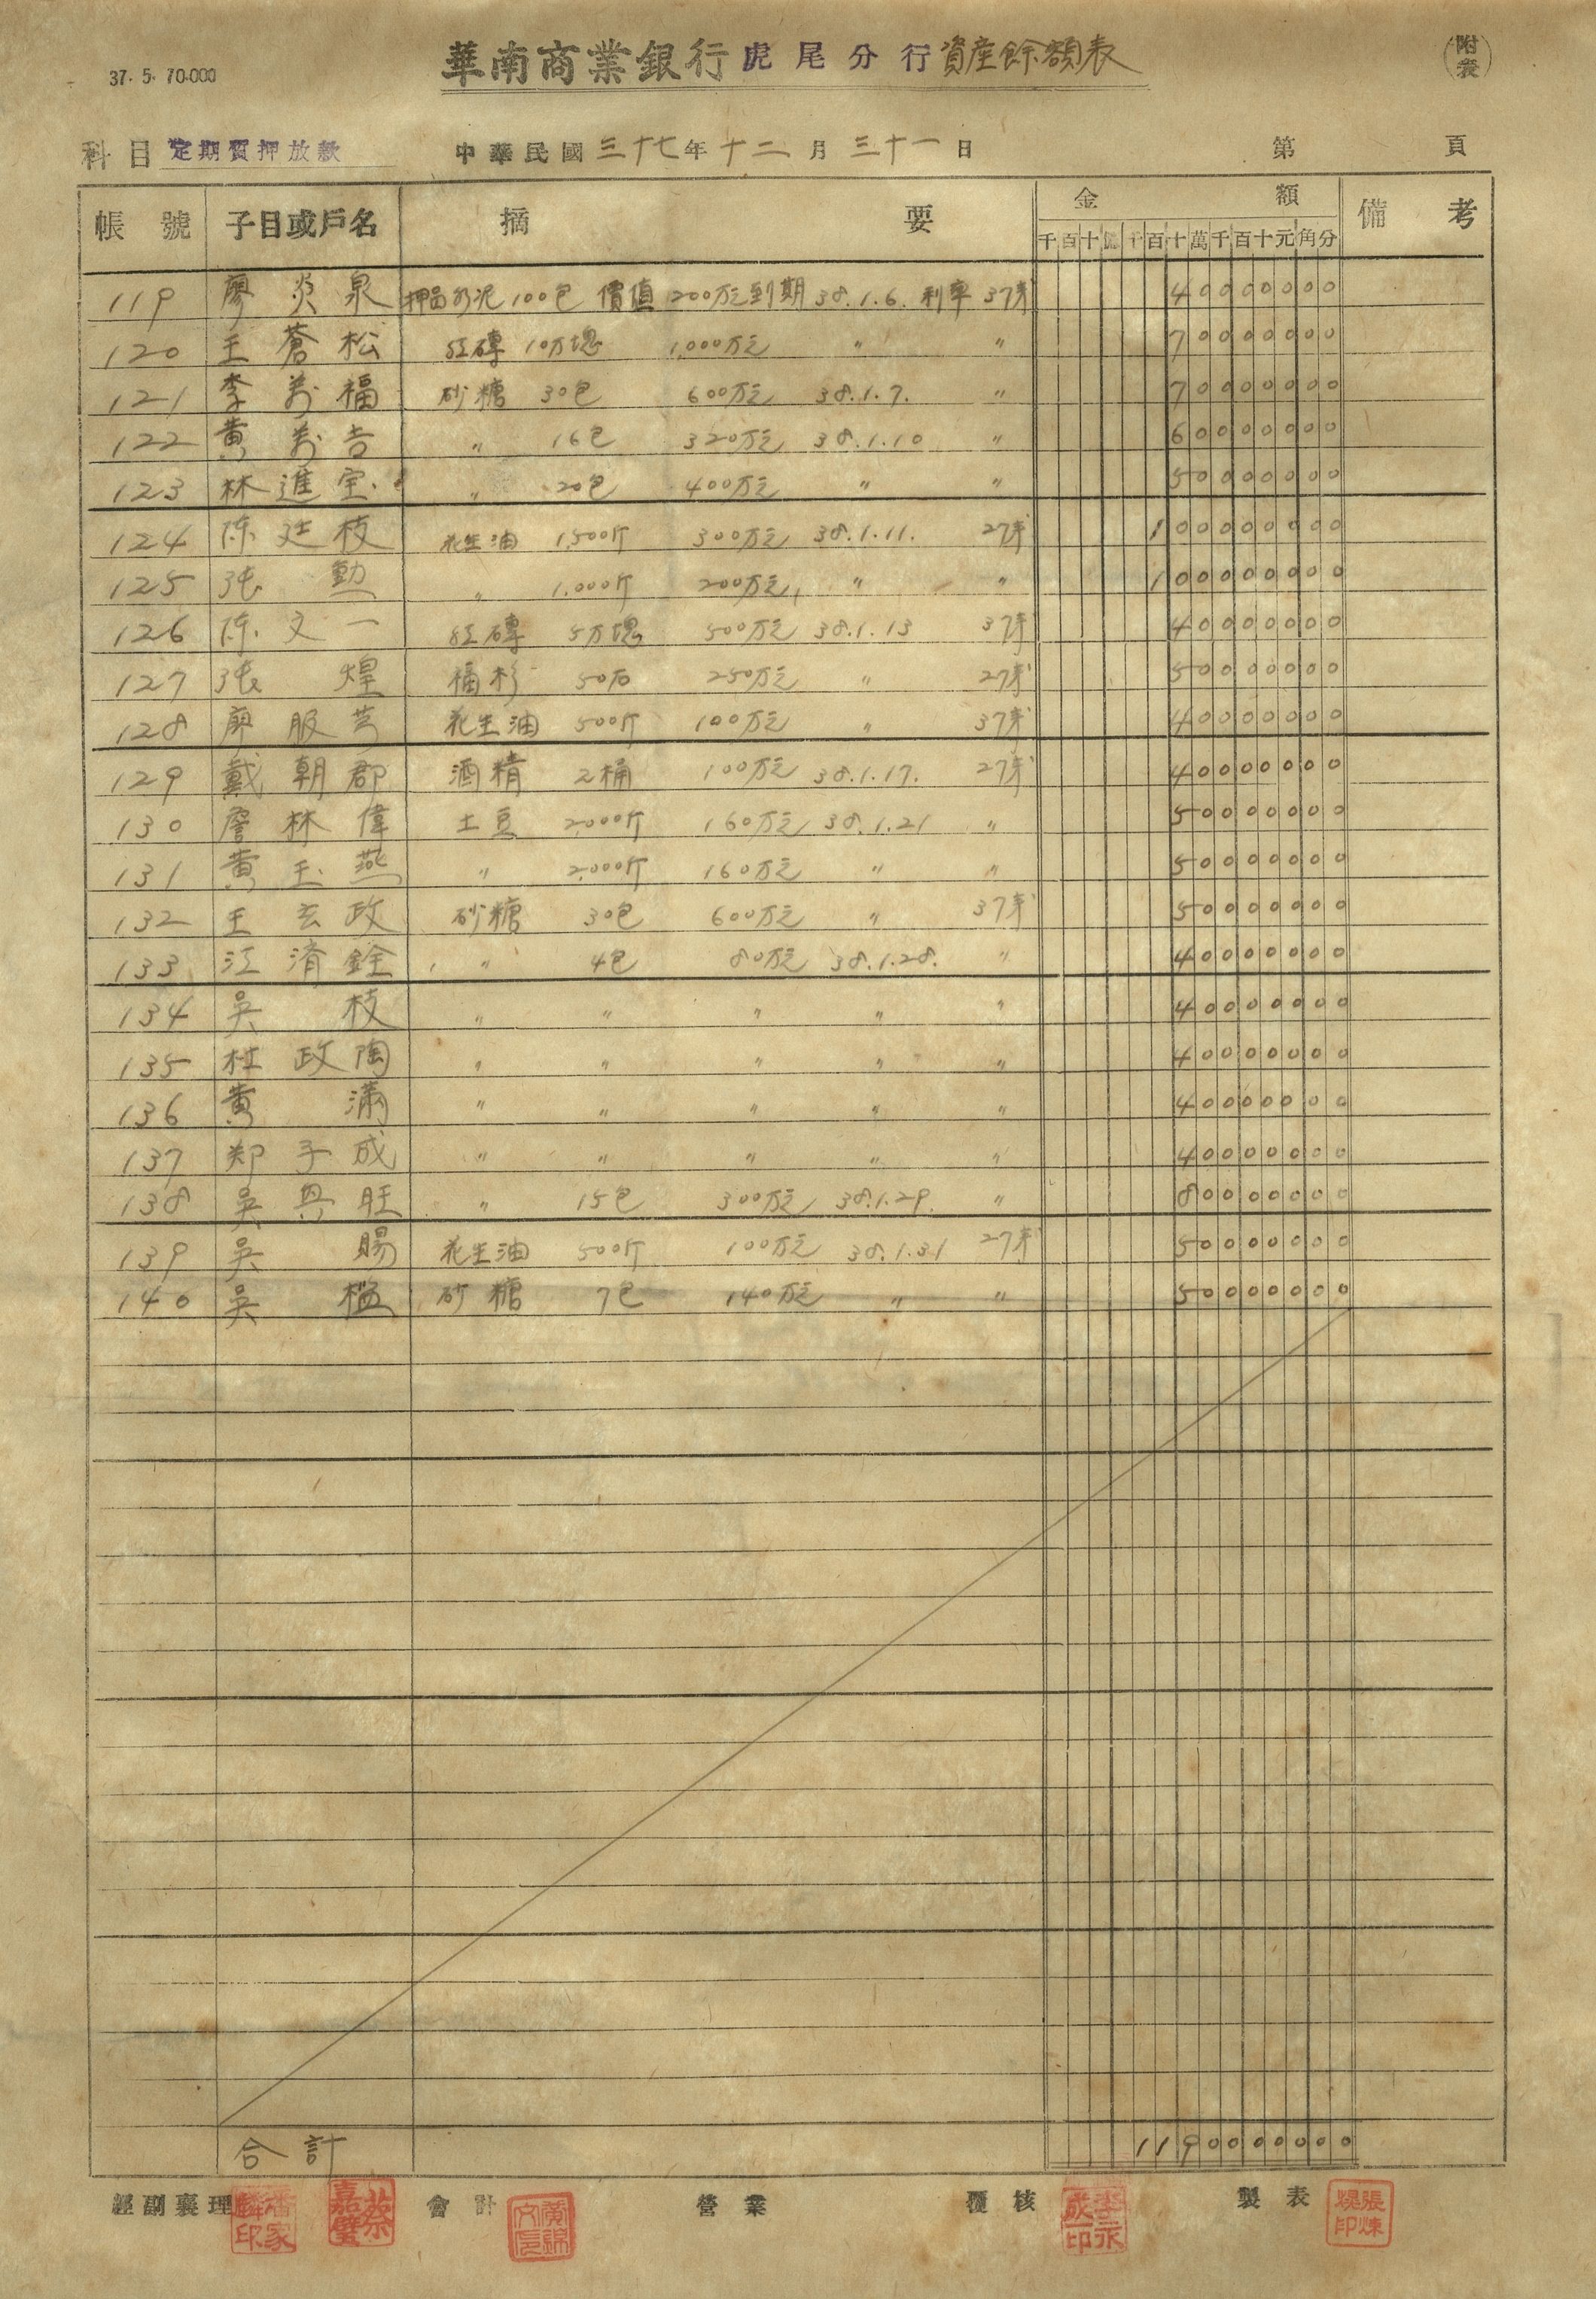 37. 5. 70.000
華南商業銀行虎尾分行資産餘額表
(附表)
科目 定期質押放款 中華民國三十七年十二月三十一日 第 頁
帳號 子目或戶名 摘要 金額 備考
千百十億千百十萬千百十元角分
119 廖炎泉 押品水泥100包 價值200万元 到期38.1.6. 利率37 40000000
120 王蒼松 紅磚10万塊 1,000万元 〃 〃 70000000
121 李萬福 砂糖 30包 600万元 38.1.7. 〃 70000000
122 黄萬吉 〃 16包 320万元 38.1.10 〃 60000000
123 林進宝 〃 20包 400万元 〃 〃 50000000
124 陈廷枝 花生油 1,500斤 300万元 38.1.11. 27 100000000
125 張勳 〃 1,000斤 200万元 〃 〃 100000000
126 陈文一 紅磚 5万塊 500万元 38.1.13 37 40000000
127 張煌 福杉 50石 250万元 〃 27 50000000
128 廖服 花生油 500斤 100万元 〃 37 40000000
129 戴朝郡 酒精 2桶 100万元 38.1.17. 27 40000000
130 詹林偉 土豆 2,000斤 160万元 38.1.21 〃 50000000
131 黄玉燕 〃 2,000斤 160万元 〃 〃 50000000
132 王玄政 砂糖 30包 600万元 〃 37 50000000
133 江清銓 〃 4包 80万元 38.1.28. 〃 40000000
134 吳枝 〃 〃 〃 〃 〃 40000000
135 杜政陶 〃 〃 〃 〃 〃 40000000
136 黄滿 〃 〃 〃 〃 〃 40000000
137 郑子成 〃 〃 〃 〃 〃 40000000
138 吳興旺 〃 15包 300万元 38.1.29. 〃 80000000
139 吳賜 花生油 500斤 100万元 38.1.31 27 50000000
140 吳 砂糖 7包 140万元 〃 〃 50000000
合計 1190000000
經副襄理 潘家麟印 蔡嘉璧 會計 黃錦文 營業 覆核 李永成印 製表 張煉焜印